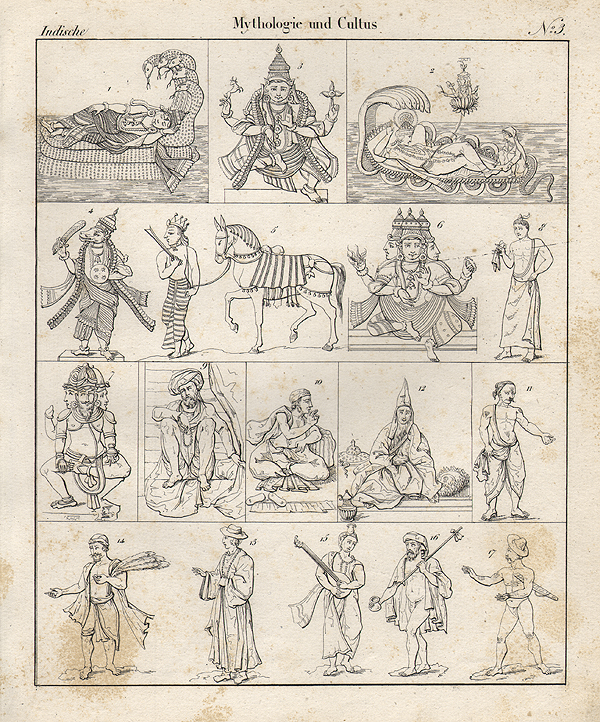 Indische
Mythologie und Cultus.
No. 3.
1
3
2
4
5
6
8
7
9
10
12
11
14
13
15
16
17